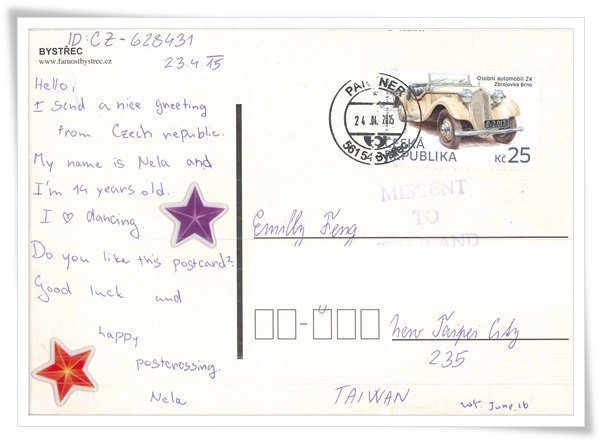 ID:CZ-628431
BYSTŘEC
www.farnostbystrec.cz
23.4.15
Hello,
I send a nice greeting
from Czech republic.
My name is Nela and
I'm 14 years old.
I ♡ dancing.
Do you like this postcard?
Good luck and
happy
postcrossing.
Nela
Osobní automobil Z4
Zbrojovka Brno
ČESKÁ
REPUBLIKA
Kč 25
PARTNER
24.04.2015
56154 Bystřec
MISSENT
TO
THAILAND
Emilly Feng
New Taipei City
235
TAIWAN
2015. June. 16